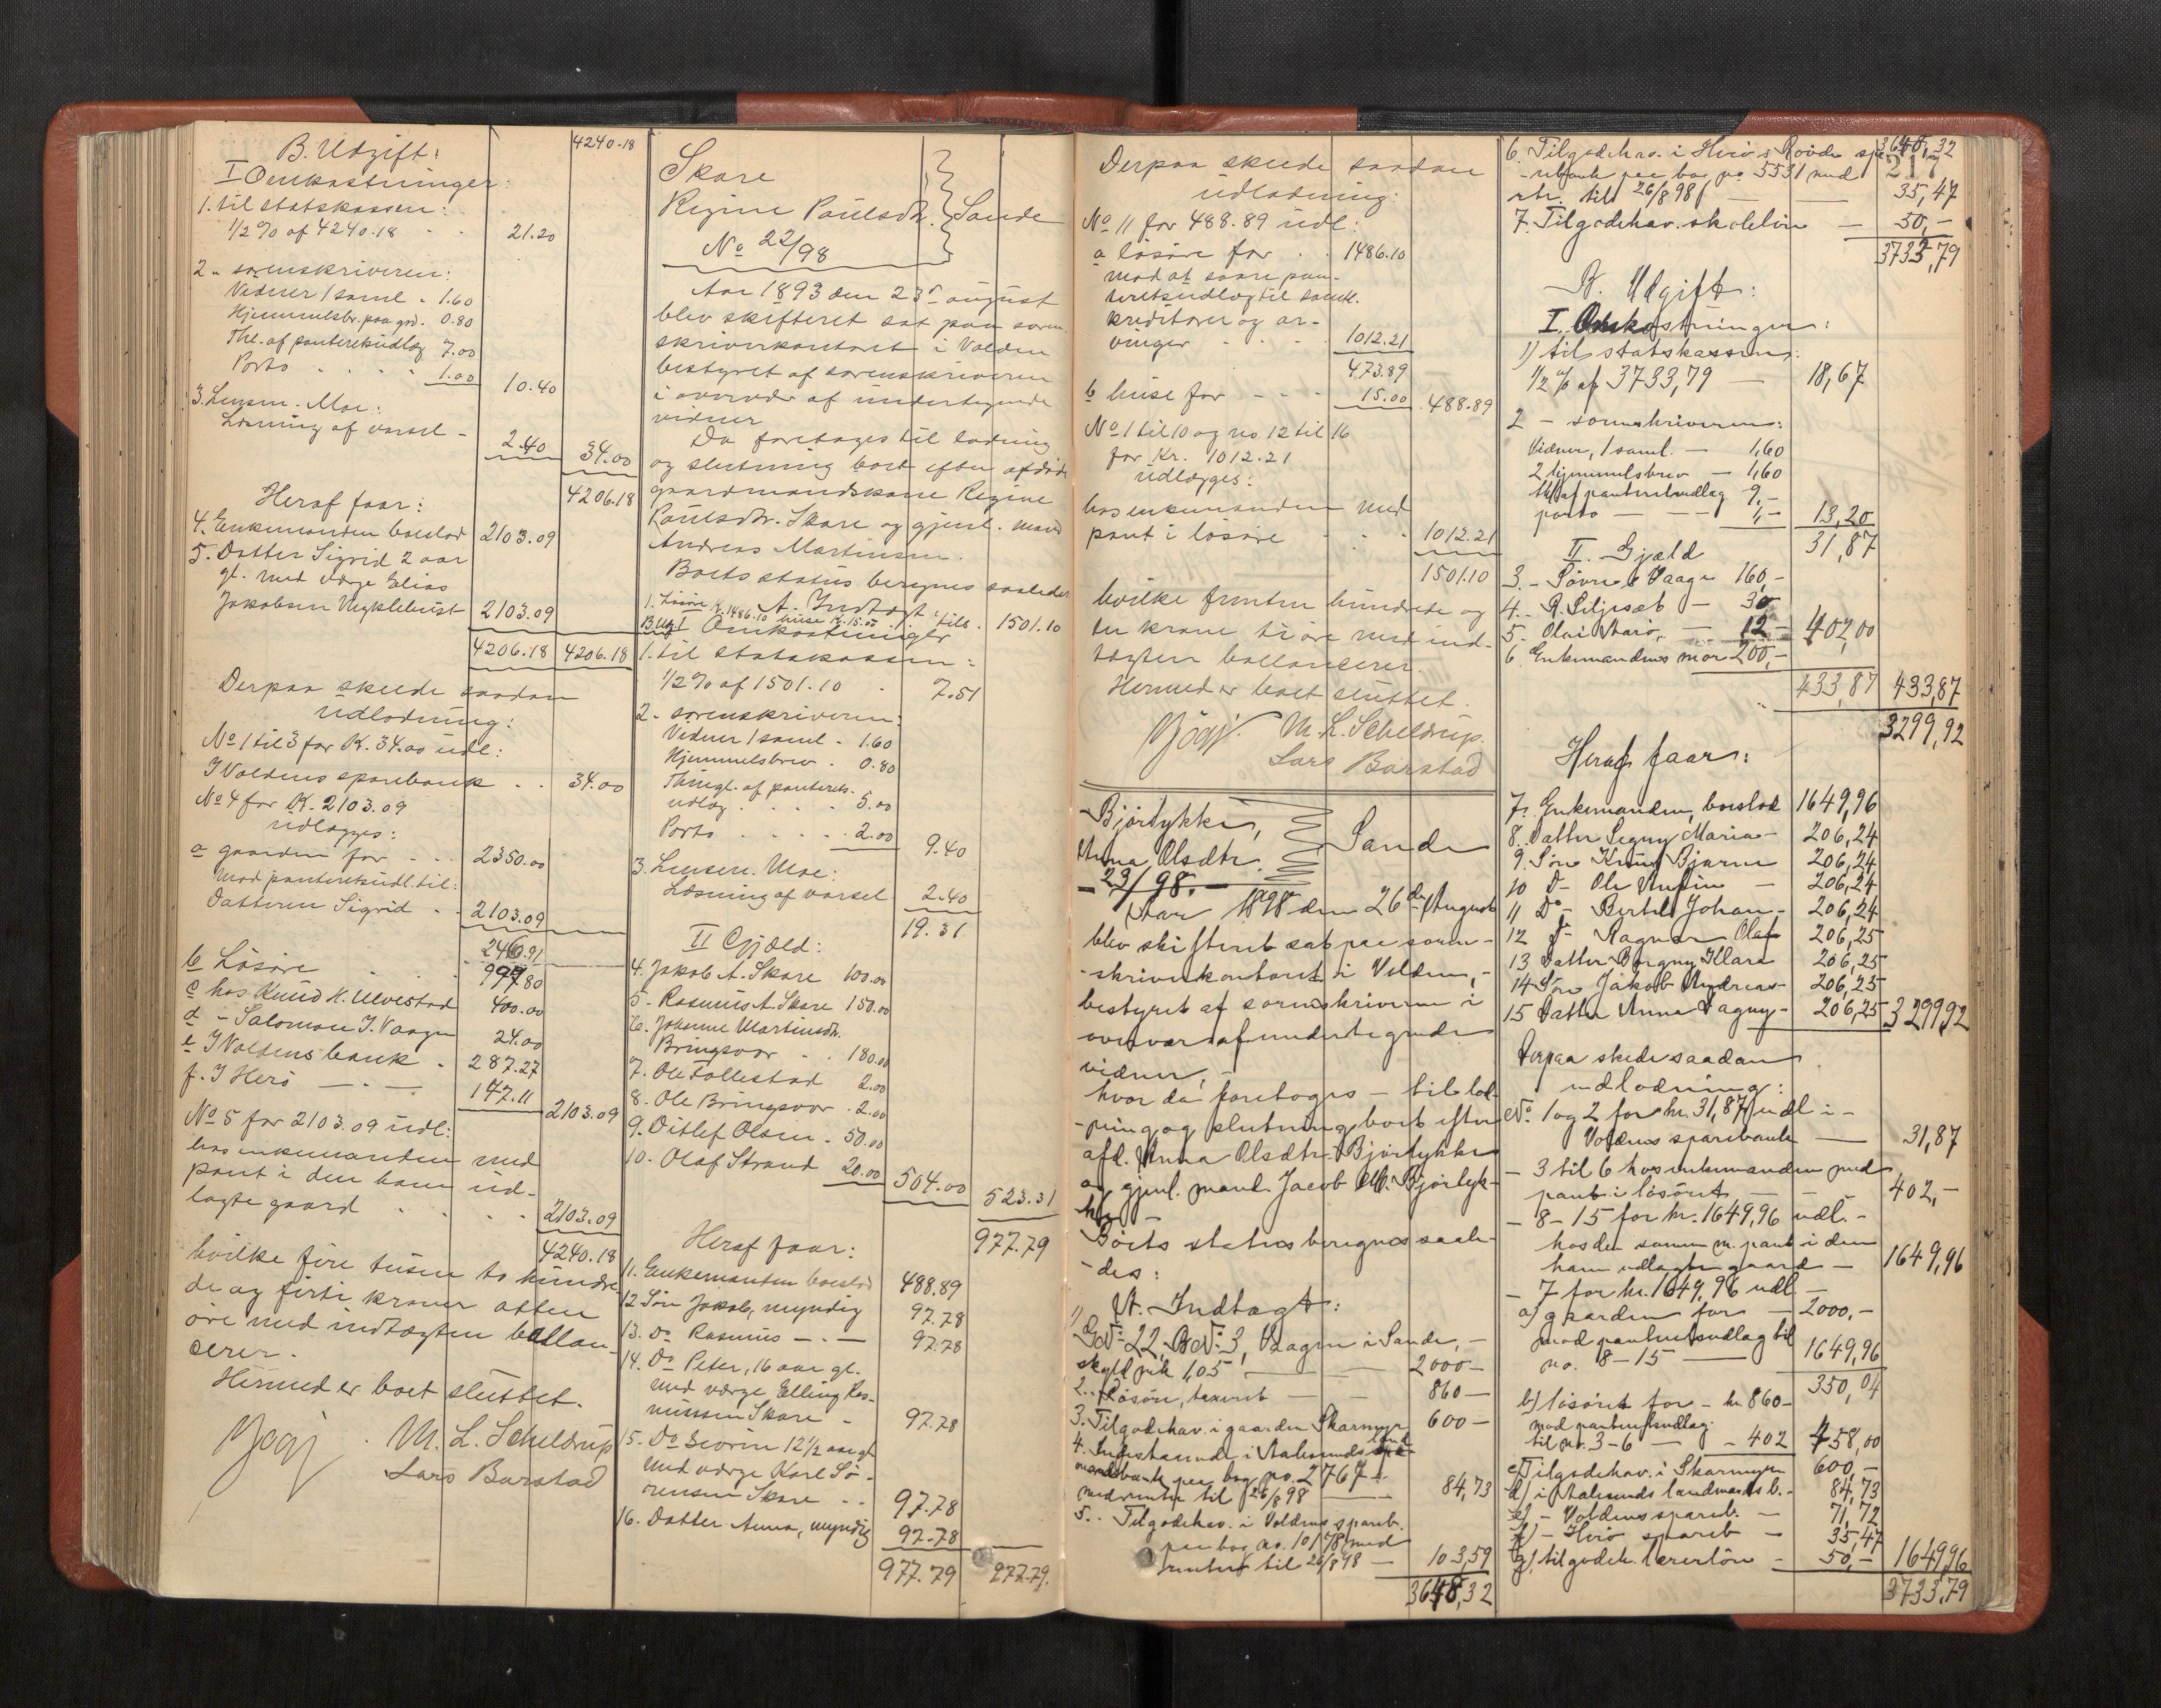 B. Udgift: 4240-18
I Omkostninger:
1. til statskassen:
1/2 % af 4240.18 - - 21.20
2 - sorenskriveren:
Vidner 1 saml - 1.60
Hjemmelsbr. paa grd. 0.80
Thl. af panteretsudlæg 7.00
Porto . . . . 1.00 10.40
3. Lensm. Moe:
Læsning af varsel - 2.40 34.00
4206.18
Heraf faar:
4. Enkemanden boeslod 2103.09
5. Datter Sigrid 2 aar
gl. med værge Elias
Jakobsen Myklebust 2103.09
4206.18 4206.18
Derpaa skeede saadan
udlodning:
No 1 til 3 for K. 34.00 udl:
I Voldens sparebank . . 34.00
No 4 for K. 2103.09
udlægges:
a gaarden for - . . 2350.00
mod panteretsudl. til:
Datteren Sigrid . . 2103.09
246.91
b Løsøre . . . 997.80
c hos Knud K. Ulvestad 400.00
d - Salomon J. Vaage 24.00
e I Voldens bank . 287.27
f. I Herø — . — 147.11 2103.09
No 5 for 2103.09 udl:
hos enkemanden med
pant i den ham ud-
lagte gaard . . . . 2103.09
4240.18
hvilke fire tusen to hundre-
de og firti kroner atten
øre med indtægten ballan-
cerer.
Hermed er boet sluttet.
M. L. Scheldrup
Lars Barstad
Skare
Regine Paulsdtr. Sande
No 22/98
Aar 1893 den 23de august
blev skifteret sat paa soren-
skriverkontoret i Volden
bestyret af sorenskriveren
i overvær af undertegnede
vidner
Da foretoges til lodning
og slutning boet efter afdøde
gaardmandskone Regine
Paulsdtr. Skare og gjenl. mand
Andreas Martinsen.
Boets status beregnes saaledes
A. Indtægt
1. Løsøre K. 1486.10 huse K. 15.00 tils. 1501.10
B. Udg. I Omkostninger
1. til statskassen:
1/2 % af 1501.10 . 7.51
2 - sorenskriveren:
Vidner 1 saml - 1.60
Hjemmelsbrev . 0.80
Thingl. af panterets-
udlæg . . . . 5.00
Porto . . . . . 2.00 9.40
3. Lensm. Moe:
Læsning af varsel 2.40
19.31
II Gjæld:
4. Jakob A. Skare 100.00
5 - Rasmus A. Skare 150.00
6. Johanne Martinsdtr.
Bringsvor . . 180.00
7. Ole Follestad 2.00
8. Ole Bringsvor . 2.00
9. Ditlef Olsen - 50.00
10. Olaf Strand 20.00 504.00 523.31
977.79
Heraf faar:
11. Enkemanden boeslod 488.89
12 Søn Jakob, myndig 97.78
13. Do Rasmus — . — 97.78
14. Do Peter, 16 aar gl.
med værge Elling Ras-
mussen Skare - 97.78
15. Do Severin 12 1/2 aar gl
med værge Karl Sø-
rensen Skare . . 97.78
16. Datter Anna, myndig 97.78
977.79 977.79.
Derpaa skeede saadan
udlodning:
No 11 for 488.89 udl:
a løsøre for . . 1486.10
mod at svare pan-
teretsudlæg til saml.
kreditorer og ar-
vinger . . . . 1012.21
473.89
b huse for - - - 15.00 488.89
No 1 til 10 og no 12 til 16
for Kr. 1012.21
udlægges:
hos enkemanden med
pant i løsøre . . . 1012.21
1501.10
hvilke femten hundrede og
en krone ti øre med ind-
tægten ballancerer.
Hermed er boet sluttet.
M. L. Scheldrup.
Lars Barstad
Bjørlykke,
Anna Olsdtr. Sande
- 23/98. -
Aar 1898 den 26de August
blev skifteret sat paa soren-
-skriverkontoret i Volden, -
bestyret af sorenskriveren i
overvær af undertegnede
vidner, -
hvor da foretoges - til lod-
-ning og slutning boet efter
afd. Anna Olsdtr. Bjørlykke
og gjenl. mand Jacob M. Bjørlyk-
ke -
Boets status beregnes saale-
-des:
A. Indtægt:
1) G.No 22, B.No 3, Vaagen i Sande, -
skyld mk 1,05 — 2000 -
2. - Løsøre, taxeret — 860 -
3. Tilgodehav. i gaarden Skarmyr 600 -
4. Indestaaende i Aalesunds land-
mandsbank paa bog no. 2767
med renter til 26/8 98 — 84,73
5. . Tilgodehav. i Voldens spareb.
paa bog no. 10178 med
renter til 26/8 98 — 103,59
3648,32
3648,32
217
6. Tilgodehav. i Herø & Røvde spa-
-rebank paa bog no 5531 med
rtr. till 26/8 98 — 35,47
7. Tilgodehav. skoleløn — 50,-
3733,79
B. Udgift:
I. Omkostninger:
1) til statskassen:
1/2 % af 3733,79 — 18,67
2 - sorenskriveren:
Vidner, 1 saml. — 1,60
2 hjemmelsbrev — 1,60
thl af panteretsudlæg 9,-
porto — — 1,- 13,20
31,87
II. Gjæld
3. - Søvre & Vaage 160,-
4. - R. Siljesæt — 30
5. Olai Aarø, — 12 - 402,00
6. Enkemandens mor 200,-
433,87 433,87
3299,92
Heraf faar:
7. Enkemanden, boeslod 1649,96
8. Datter Signy Maria - 206,24
9. Søn Knut Bjarne 206,24
10 D - Ole Anfin - 206,24
11 Do - Bertel Johan - 206,24
12 D - Ragnar Olaf 206,25
13 Datter Borgny Klara 206,25
14 Søn Jakob Andreas - 206,25
15 Datter Anna Dagny - 206,25 3299,92
Derpaa skede saadan
udlodning:
No. 1 og 2 for kr. 31,87 udl i -
Voldens sparebank — 31,87
- 3 til 6 hos enkemanden med
pant i løsøret — 402,-
- 8 - 15 for kr. 1649,96 udl. -
hos den samme m. pant i den
ham udlagte gaard — 1649,96
- 7 for kr. 1649,96 udl. -
a) gaarden for — 2000,-
mod panteretsudlæg til
no. 8 - 15 — 1649,96
350,04
b) løsøret for - kr 860 -
mod panteretsudlæg
til no. 3-6 — - 402 458,00
c) Tilgodehav. i Skarmyr 600,-
d) i Aalesunds landmands b. - 84,73
e) - Voldens spareb. - 71,72
f) - Herø spareb - 35,47
g) tilgodeh. lærerløn - 50,- 1649,96
3733,79